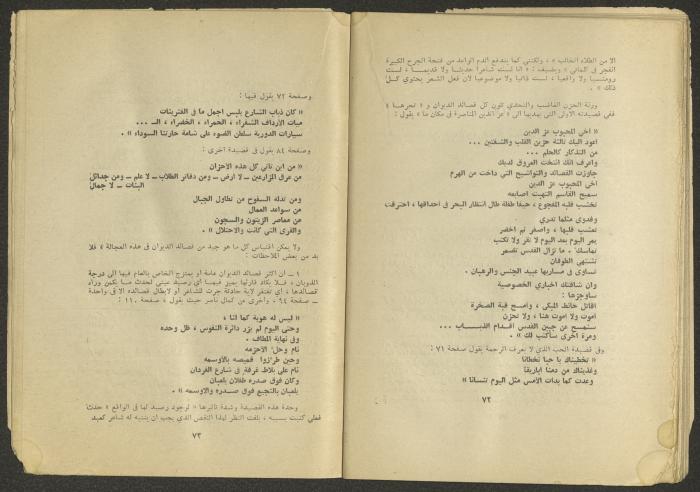 الا من الطلاء الخالب » ، ولكنني كما يندفع الدم الواعد من فتحة الجرح الكبيرة
انفجر في كلماتي » ويضيف : « انا لست شاعرا حديثا ولا قديما ، لست
رومنسيا ولا واقعيا ، لست ذاتيا ولا موضوعيا لان فعل الشعر يحتوي كل
ذلك » .
ورنة الحزن الغاضب والتحدي تلون كل قصائد الديوان و
ففي قصيدته الاولى التي يهديها الى « عز الدين المناصرة في مكان ما » يقول :
« اخي المحبوب عز الدين
اعود اليك ثالثة حزين القلب والشفتين ...
من التذكار كالحلم ...
واعرف انك انتخت العروق لديك
جاوزت القصائد والتواشيح التي داخت من الهرم
اخي المحبوب عز الدين
سميح القاسم التهبت اصابعه
تخشب قلبه المفجوع ، حيفا طفلة طال انتظار البحر في احداقها ، احترقت
وفدوى مثلما تدري
تعشب قلبها ، واصفر ثم اخضر
يمر اليوم بعد اليوم لا تقر ولا تكتب
تماسك . ما تزال القدس تضمر
تشتهي الطوفان
تساوى في مساربها عبيد الجنس والرهبان .
وان شاقتك اخباري الخصوصية
ساوجزها :
اقاتل حائط المبكى ، وامسح قبة الصخرة
اموت ولا اموت هنا ، ولا تحزن
سنمسح عن جبين القدس اقدام الذئاب ...
ومرة اخرى ساكتب لك » .
وفي قصيدة الحب الذي لا يعرف الرحمة يقول صفحة ٧١ :
« تخطيناك يا حبا تخطانا
وغذيناك من دمنا اباريقا
وعدت كما بدات الامس مثل اليوم تنسانا »
٧٢
وصفحة ٧٢ يقول فيها :
« كان ذباب الشارع يلبس اجمل ما في الفترينات
مبات الارداف الشقراء ، الحمراء ، الخضراء ، الـ ...
سيارات الدورية سلطن الضوء على شامة حارتنا السوداء » .
وصفحة ٨٤ يقول في قصيدة اخرى :
« من اين تاتي كل هذه الاحزان
من عرق المزارعين ــ لا ارض ــ ومن دفاتر الطلاب ــ لا علم ــ ومن جدائل
البنات ــ لا جمال
ومن تدله السفوح من تطاول الجبال
من سواعد العمال
من معاصر الزيتون والسجون
والقرى التي كانت والاحتلال » .
ولا يمكن اقتباس كل ما هو جيد من قصائد الديوان في هذه العجالة « فلا
بد من بعض الملاحظات :
١ ــ ان اكثر قصائد الديوان عامة او يمتزج الخاص بالعام فيها الى درجة
الذوبان ، فلا يكاد قارئها يميز فيها اي رصيد عيني لحدث ما يكمن وراء
قصائدها ، اي تفتقر لاية حادثة جرت للشاعر او لابطال قصائده الا في واحدة
ــ صفحة ٩٤ ، واخرى من كمال ناصر حيث يقول ، صفحة ١١٠ :
« ليس له هوية كما انا ،
وحتى اليوم لم يزر دائرة النفوس ، ظل وحده
وفي نهاية المطاف .
نام وحل الاحزمه
وحين طرزوا قميصه بالاوسمه
نام على بلاط غرفة في شارع الفردان
وكان فوق صدره طفلان يلعبان
يلعبان بالنجيع فوق صدره والاوسمه » .
وحدة هذه القصيدة وشدة تاثيرها « لوجود رصيد لها في الواقع » حدث
فعلي كتبت بسببه ، يلفت النظر لهذا النقص الذي يجب ان ينتبه له شاعر كعبد
٧٣